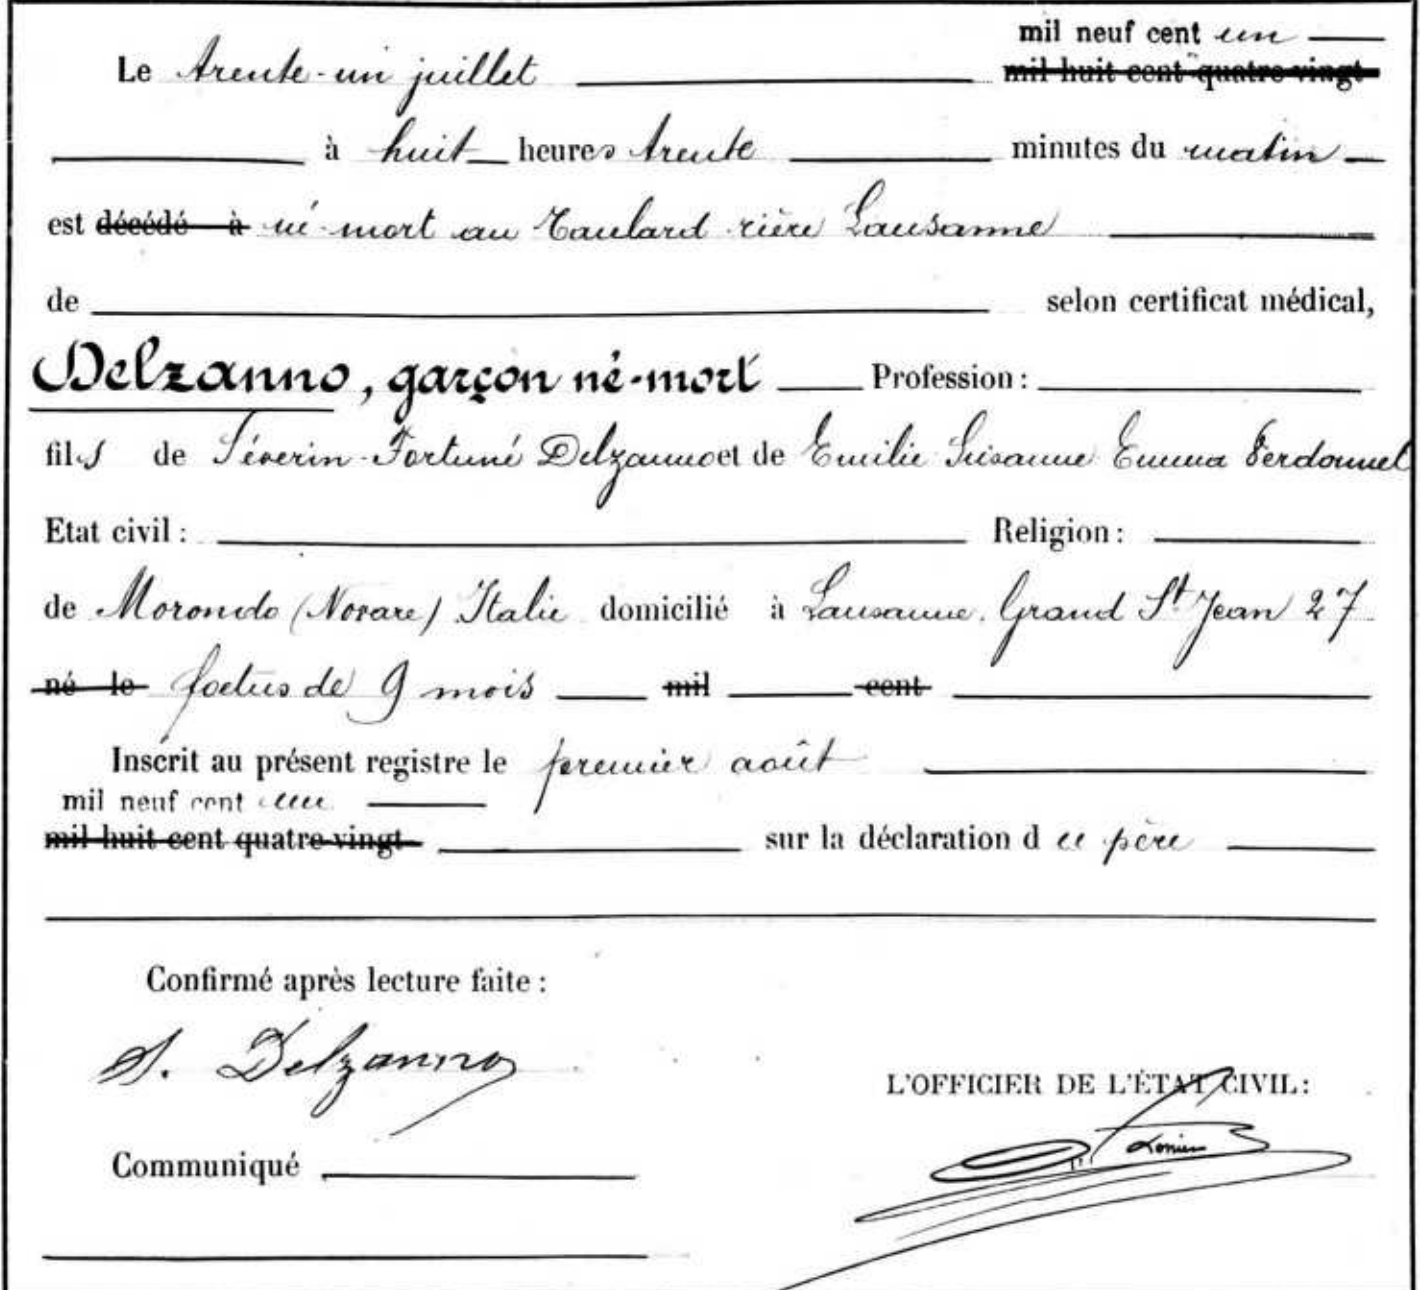 mil neuf cent un
Le trente-un juillet mil huit cent quatre-vingt
à huit heures trente minutes du matin
est décédé à né-mort au Taulard rière Lausanne
de selon certificat médical,
Delzanno, garçon né-mort Profession :
fils de Séverin-Fortuné Delzanno et de Emilie Susanne Emma Perdonnel
Etat civil : Religion :
de Morondo (Novare) Italie domicilié à Lausanne, Grand St Jean 27
né le foetus de 9 mois mil cent
Inscrit au présent registre le premier août
mil neuf cent un
mil huit cent quatre-vingt sur la déclaration d u père
Confirmé après lecture faite :
S. Delzanno
L'OFFICIER DE L'ÉTAT CIVIL :
Communiqué